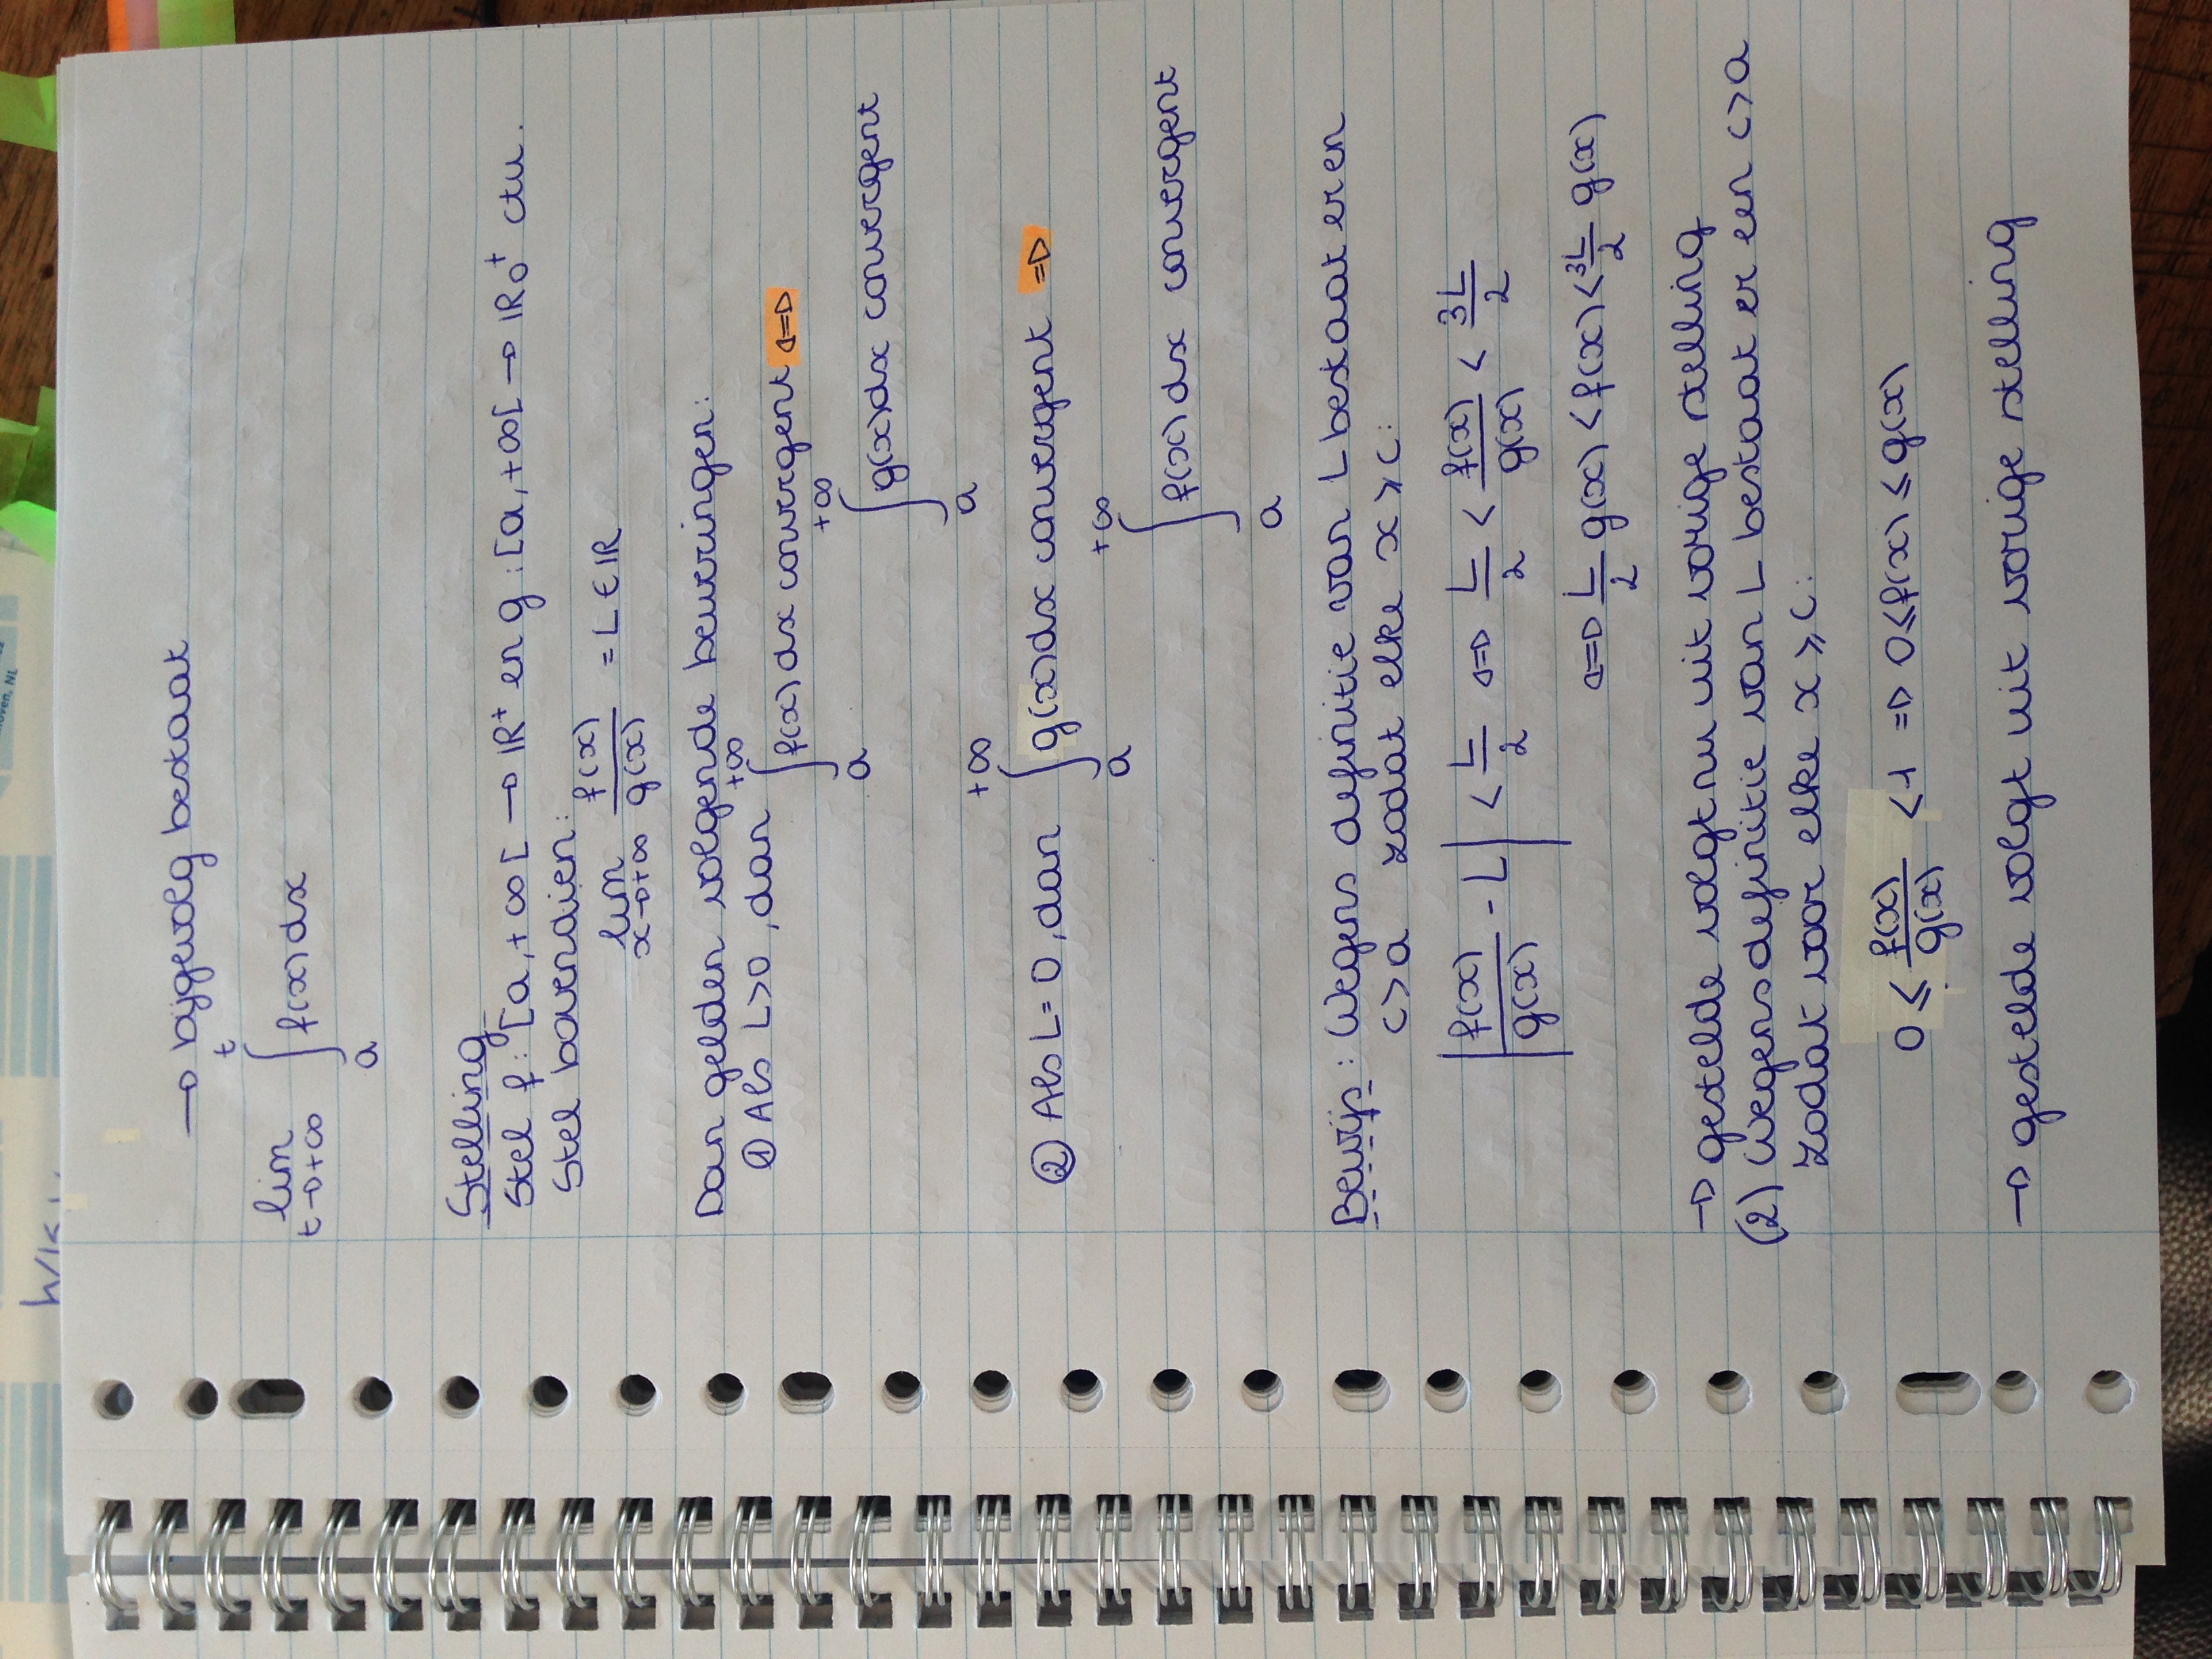 hoven, NL
→ bijgevolg bestaat
lim t→+∞ ∫ₐᵗ f(x) dx
Stelling
Stel f: [a, +∞[ → IR⁺ en g: [a, +∞[ → IR₀⁺ ctu.
Stel bovendien:
lim x→+∞ f(x)/g(x) = L ∈ IR
Dan gelden volgende beweringen:
① Als L>0, dan ∫ₐ^+∞ f(x) dx convergent ⇔
∫ₐ^+∞ g(x)dx convergent
② Als L=0, dan ∫ₐ^+∞ g(x)dx convergent ⇒
∫ₐ^+∞ f(x) dx convergent
Bewijs: Wegens definitie van L bestaat er en
c>a zodat elke x ⩾ c:
|f(x)/g(x) - L| < L/2 ⇔ L/2 < f(x)/g(x) < 3L/2
⇔ L/2 g(x) < f(x) < 3L/2 g(x)
→ gestelde volgt nu uit vorige stelling
(2) Wegens definitie van L bestaat er een c>a
zodat voor elke x ⩾ c:
0 ⩽ f(x)/g(x) < 1 ⇒ 0 ⩽ f(x) ⩽ g(x)
→ gestelde volgt uit vorige stelling